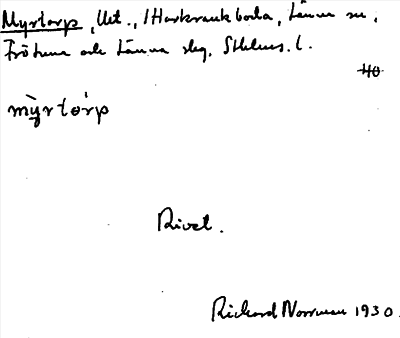 Myrtorp, Utt., 1 Harkrank borta, Länna sn,
Frötuna och Länna slg, Sthlms. l.
40
mỳrtór̀p
Rivet.
Richard Norrman 1930.